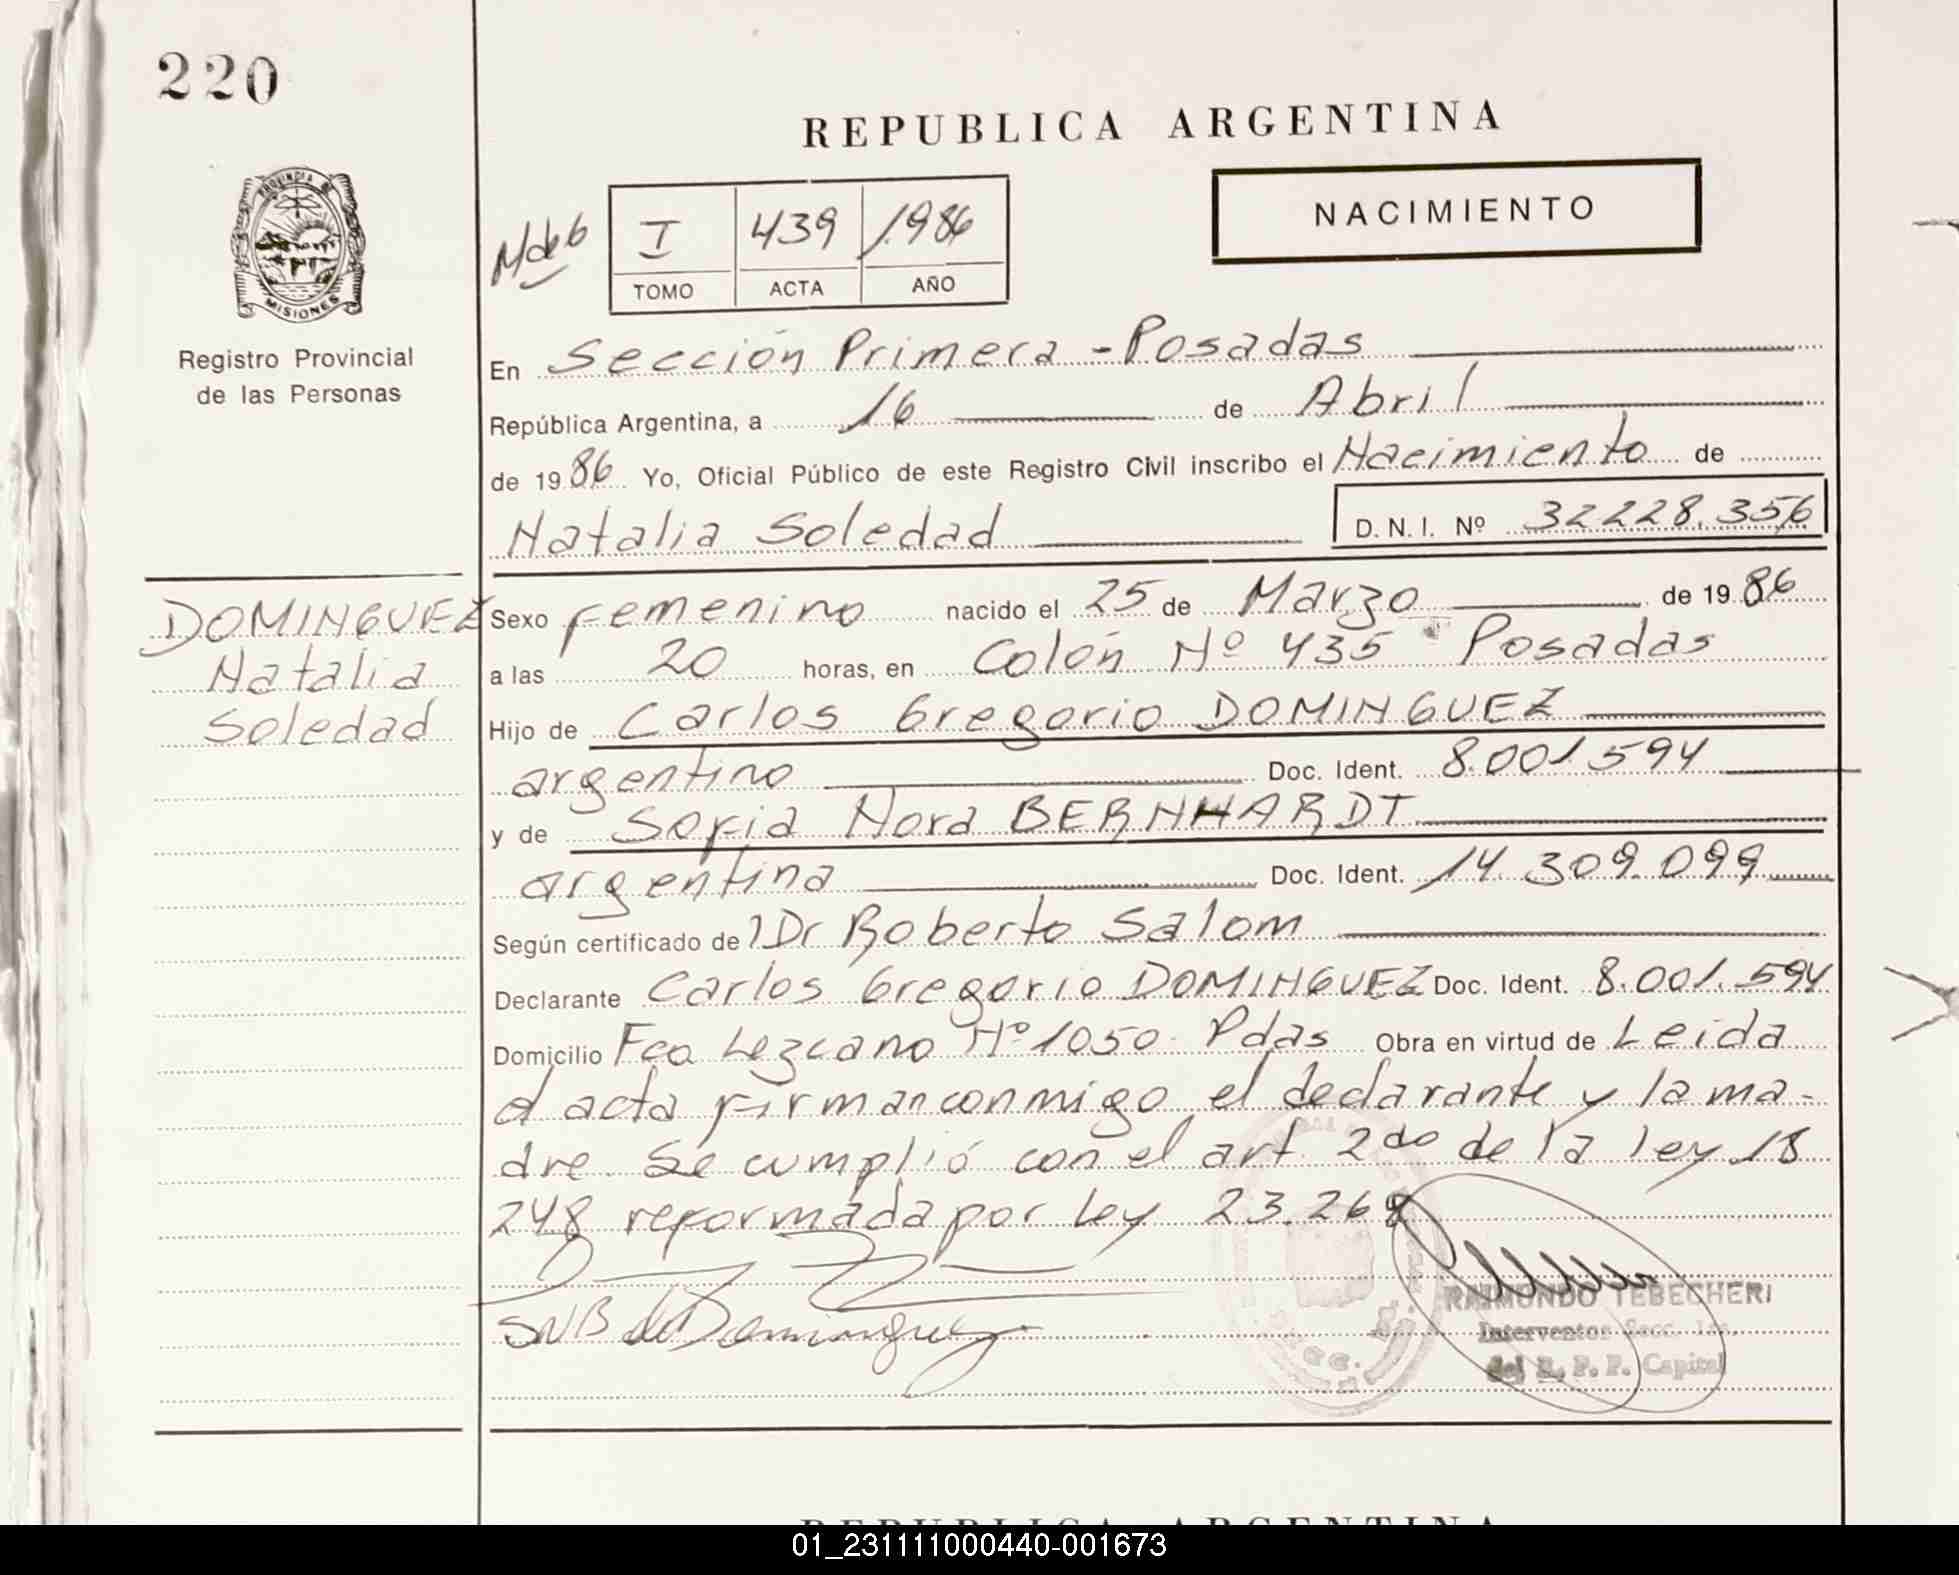 220
REPUBLICA ARGENTINA
PROVINCIA DE
MISIONES
Registro Provincial
de las Personas
I 439 1986
TOMO ACTA AÑO
NACIMIENTO
En Sección Primera - Posadas
República Argentina, a 16 de Abril
de 1986 Yo, Oficial Público de este Registro Civil inscribo el Nacimiento de
Natalia Soledad D.N.I. Nº 32228.356
DOMINGUEZ
Natalia
Soledad
Sexo femenino nacido el 25 de Marzo de 1986
a las 20 horas, en Colón Nº 435 Posadas
Hijo de Carlos Gregorio DOMINGUEZ
argentino Doc. Ident. 8.001.594
y de Sofia Nora BERNHARDT
argentina Doc. Ident. 14.309.099
Según certificado de Dr Roberto Salom
Declarante Carlos Gregorio DOMINGUEZ Doc. Ident. 8.001.594
Domicilio Fco Lezcano Nº 1050 Pdas Obra en virtud de Leida
el acta firman conmigo el declarante y la ma-
dre. Se cumplió con el art. 2do de la ley 18
248 reformada por Ley 23.268
SNB de Dominguez
RAIMUNDO TEBECHERI
Interventor Secc. 1ra.
del R. P. P. Capital
REPUBLICA ARGENTINA
01_231111000440-001673